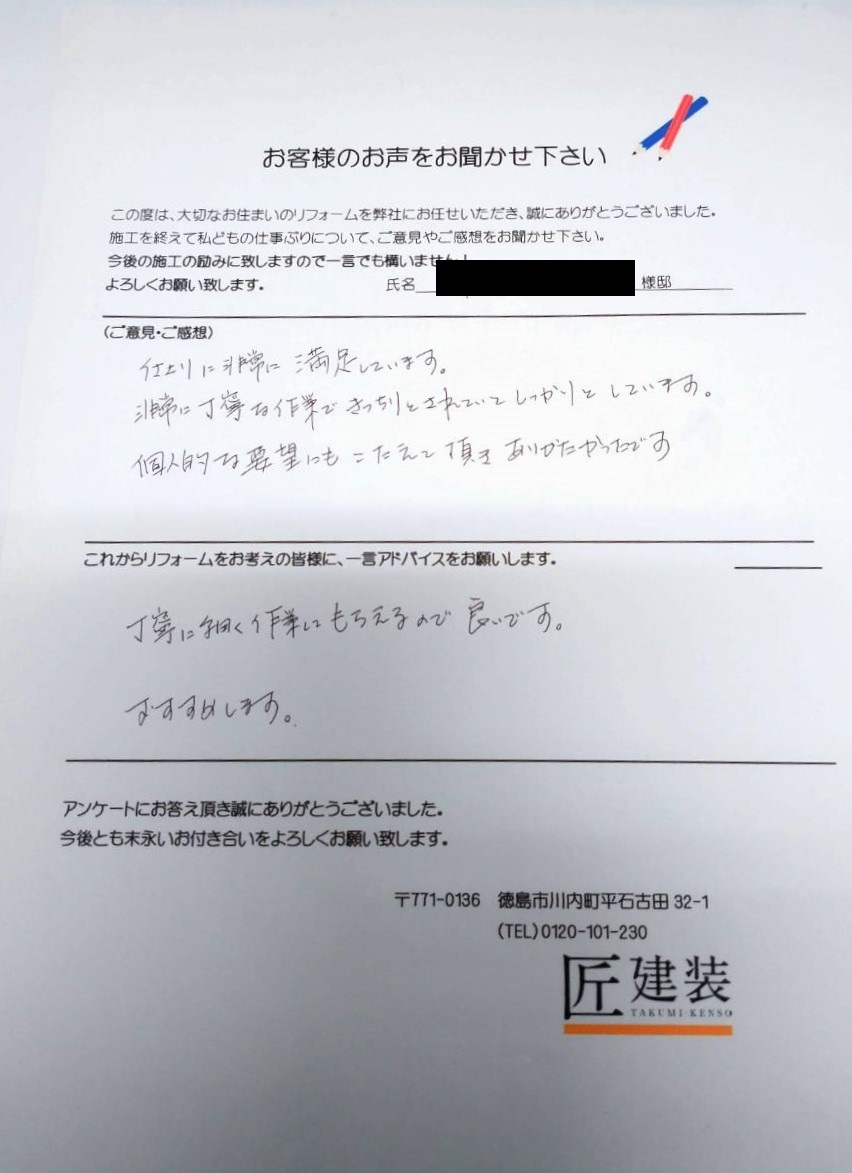 お客様のお声をお聞かせ下さい
この度は、大切なお住まいのリフォームを弊社にお任せいただき、誠にありがとうございました。
施工を終えて私どもの仕事ぶりについて、ご意見やご感想をお聞かせ下さい。
今後の施工の励みに致しますので一言でも構いません!
よろしくお願い致します。 氏名 様邸
(ご意見・ご感想)
仕上りに非常に満足しています。
非常に丁寧な作業できっちりとされていてしっかりとしています。
個人的な要望にもこたえて頂きありがたかったです
これからリフォームをお考えの皆様に、一言アドバイスをお願いします。
丁寧に細く作業してもらえるので良いです。
おすすめします。
アンケートにお答え頂き誠にありがとうございました。
今後とも末永いお付き合いをよろしくお願い致します。
〒771-0136 徳島市川内町平石古田 32-1
(TEL)0120-101-230
匠建装
TAKUMI-KENSO